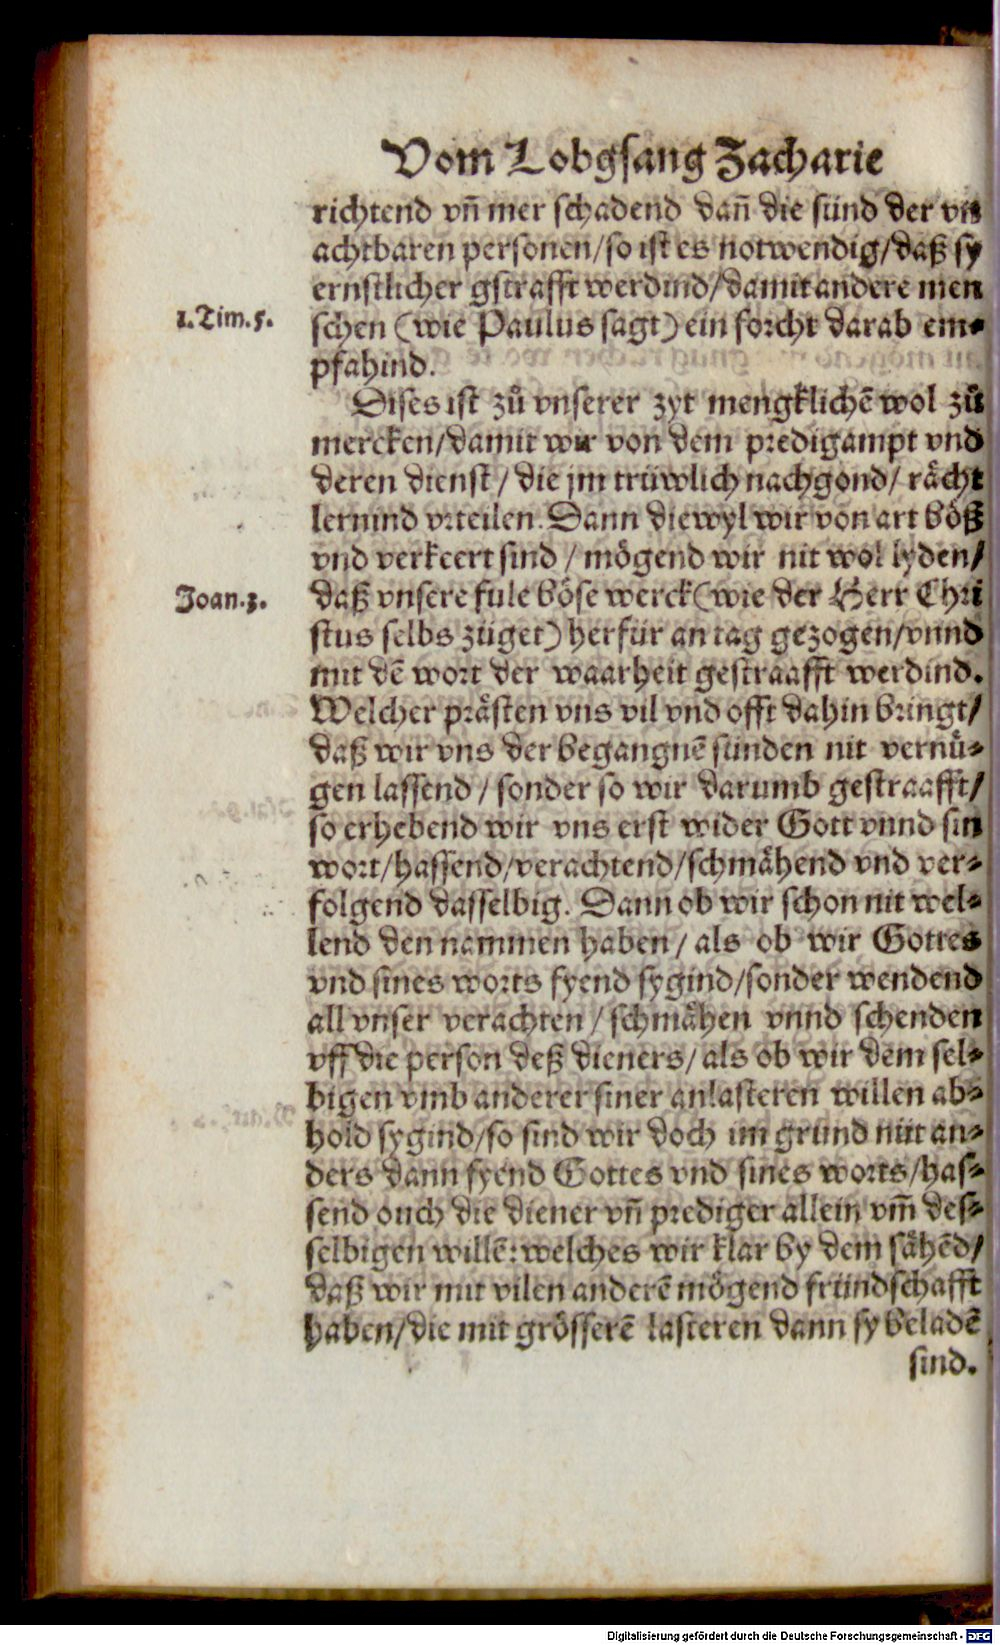 Vom Lobgsang Zacharie
richtend vn̄ mer schadend dan̄ die sünd der vn
achtbaren personen/so ist es notwendig/daß sy
ernstlicher gstrafft werdind/damit andere men
1.Tim.5.
schen (wie Paulus sagt) ein forcht darab em⸗
pfahind.
Dises ist zů vnserer zyt mengklichē wol zů
mercken/damit wir von dem predigampt vnd
deren dienst/ die jm trüwlich nachgond/ rächt
lernind vrteilen. Dann diewyl wir von art böß
vnd verkeert sind / mögend wir nit wol lyden/
Joan.3.
daß vnsere fule böse werck (wie der Herr Chri
stus selbs züget) herfür an tag gezogen/vnnd
mit dē wort der waarheit gestraafft werdind.
Welcher prästen vns vil vnd offt dahin bringt/
daß wir vns der begangnē sünden nit vernü⸗
gen lassend / sonder so wir darumb gestraafft/
so erhebend wir vns erst wider Gott vnnd sin
wort/hassend/verachtend/schmähend vnd ver⸗
folgend dasselbig. Dann ob wir schon nit wel⸗
lend den nammen haben / als ob wir Gottes
vnd sines worts fyend sygind/sonder wendend
all vnser verachten / schmähen vnnd schenden
vff die person deß dieners/ als ob wir dem sel⸗
bigen vmb anderer siner anlasteren willen ab⸗
hold sygind/so sind wir doch im grund nüt an⸗
ders dann fyend Gottes vnd sines worts/has⸗
send ouch die diener vn̄ prediger allein vm̄ des⸗
selbigen willē: welches wir klar by dem sähēd/
daß wir mit vilen anderē mögend fründschafft
haben/die mit grösserē lasteren dann sy beladē
sind.
Digitalisierung gefördert durch die Deutsche Forschungsgemeinschaft - DFG